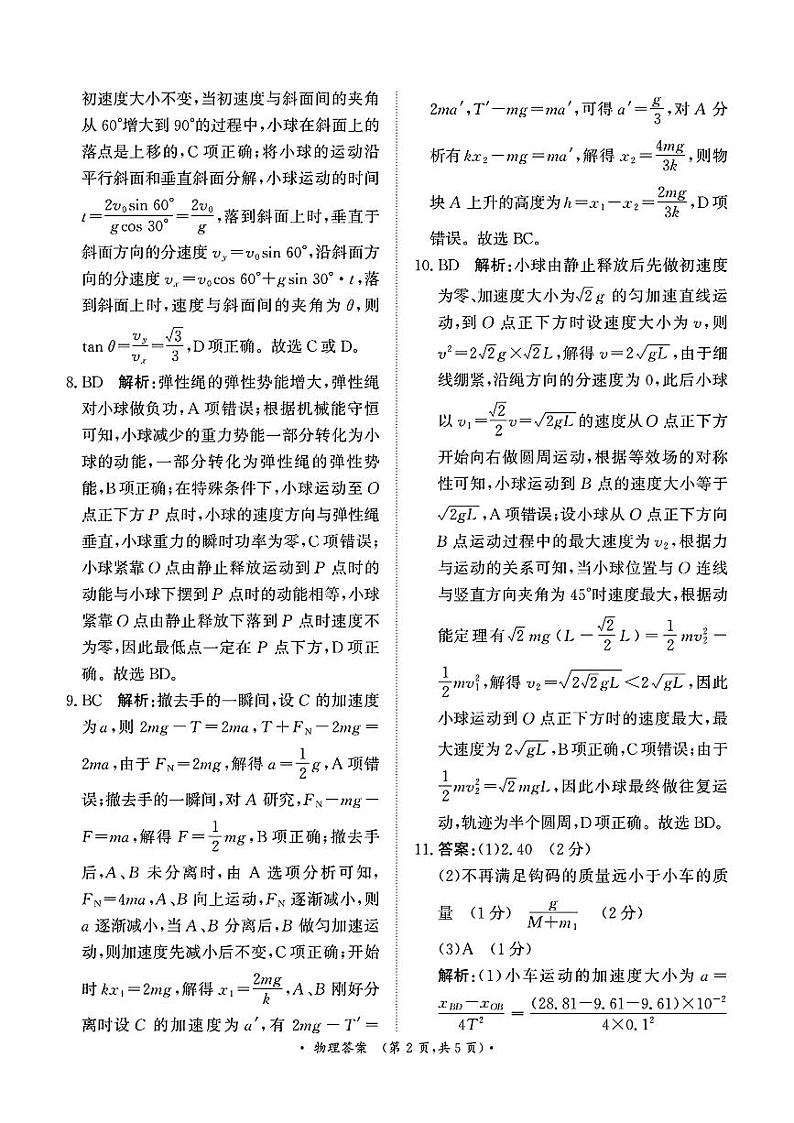 初速度大小不变,当初速度与斜面间的夹角
从 60°增大到 90°的过程中,小球在斜面上的
落点是上移的,C 项正确;将小球的运动沿
平行斜面和垂直斜面分解,小球运动的时间
t=\frac{2v_0\sin 60°}{g\cos 30°}=\frac{2v_0}{g},落到斜面上时,垂直于
斜面方向的分速度 v_y=v_0sin 60°,沿斜面方
向的分速度 v_x=v_0cos 60°+gsin 30°·t,落
到斜面上时,速度与斜面间的夹角为 θ,则
tan θ=\frac{v_y}{v_x}=\frac{\sqrt{3}}{3},D 项正确。故选 C 或 D。
8. BD 解析:弹性绳的弹性势能增大,弹性绳
对小球做负功,A 项错误;根据机械能守恒
可知,小球减少的重力势能一部分转化为小
球的动能,一部分转化为弹性绳的弹性势
能,B 项正确;在特殊条件下,小球运动至 O
点正下方 P 点时,小球的速度方向与弹性绳
垂直,小球重力的瞬时功率为零,C 项错误;
小球紧靠 O 点由静止释放运动到 P 点时的
动能与小球下摆到 P 点时的动能相等,小球
紧靠 O 点由静止释放下落到 P 点时速度不
为零,因此最低点一定在 P 点下方,D 项正
确。故选 BD。
9. BC 解析:撤去手的一瞬间,设 C 的加速度
为 a,则 2mg-T=2ma,T+F_N-2mg=
2ma,由于 F_N=2mg,解得 a=\frac{1}{2}g,A 项错
误;撤去手的一瞬间,对 A 研究,F_N-mg-
F=ma,解得 F=\frac{1}{2}mg,B 项正确;撤去手
后,A、B 未分离时,由 A 选项分析可知,
F_N=4ma,A、B 向上运动,F_N 逐渐减小,则
a 逐渐减小,当 A、B 分离后,B 做匀加速运
动,则加速度先减小后不变,C 项正确;开始
时 kx_1=2mg,解得 x_1=\frac{2mg}{k},A、B 刚好分
离时设 C 的加速度为 a′,有 2mg-T′=
2ma′,T′-mg=ma′,可得 a′=\frac{g}{3},对 A 分
析有 kx_2-mg=ma′,解得 x_2=\frac{4mg}{3k},则物
块 A 上升的高度为 h=x_1-x_2=\frac{2mg}{3k},D 项
错误。故选 BC。
10. BD 解析:小球由静止释放后先做初速度
为零、加速度大小为\sqrt{2}g 的匀加速直线运
动,到 O 点正下方时设速度大小为 v,则
v^2=2\sqrt{2}g×\sqrt{2}L,解得 v=2\sqrt{gL},由于细
线绷紧,沿绳方向的分速度为 0,此后小球
以 v_1=\frac{\sqrt{2}}{2}v=\sqrt{2gL}的速度从 O 点正下方
开始向右做圆周运动,根据等效场的对称
性可知,小球运动到 B 点的速度大小等于
\sqrt{2gL},A 项错误;设小球从 O 点正下方向
B 点运动过程中的最大速度为 v_2,根据力
与运动的关系可知,当小球位置与 O 连线
与竖直方向夹角为 45°时速度最大,根据动
能定理有\sqrt{2}mg(L-\frac{\sqrt{2}}{2}L)=\frac{1}{2}mv_2^2-
\frac{1}{2}mv_1^2,解得 v_2=\sqrt{2\sqrt{2}gL}<2\sqrt{gL},因此
小球运动到 O 点正下方时的速度最大,最
大速度为 2\sqrt{gL},B 项正确,C 项错误;由于
\frac{1}{2}mv_2^2=\sqrt{2}mgL,因此小球最终做往复运
动,轨迹为半个圆周,D 项正确。故选 BD。
11. 答案:(1)2.40 (2 分)
(2)不再满足钩码的质量远小于小车的质
量 (1 分) \frac{g}{M+m_1} (2 分)
(3)A (1 分)
解析:(1)小车运动的加速度大小为 a=
\frac{x_{BD}-x_{OB}}{4T^2}=\frac{(28.81-9.61-9.61)×10^{-2}}{4×0.1^2}
·物理答案 (第 2 页,共 5 页)·